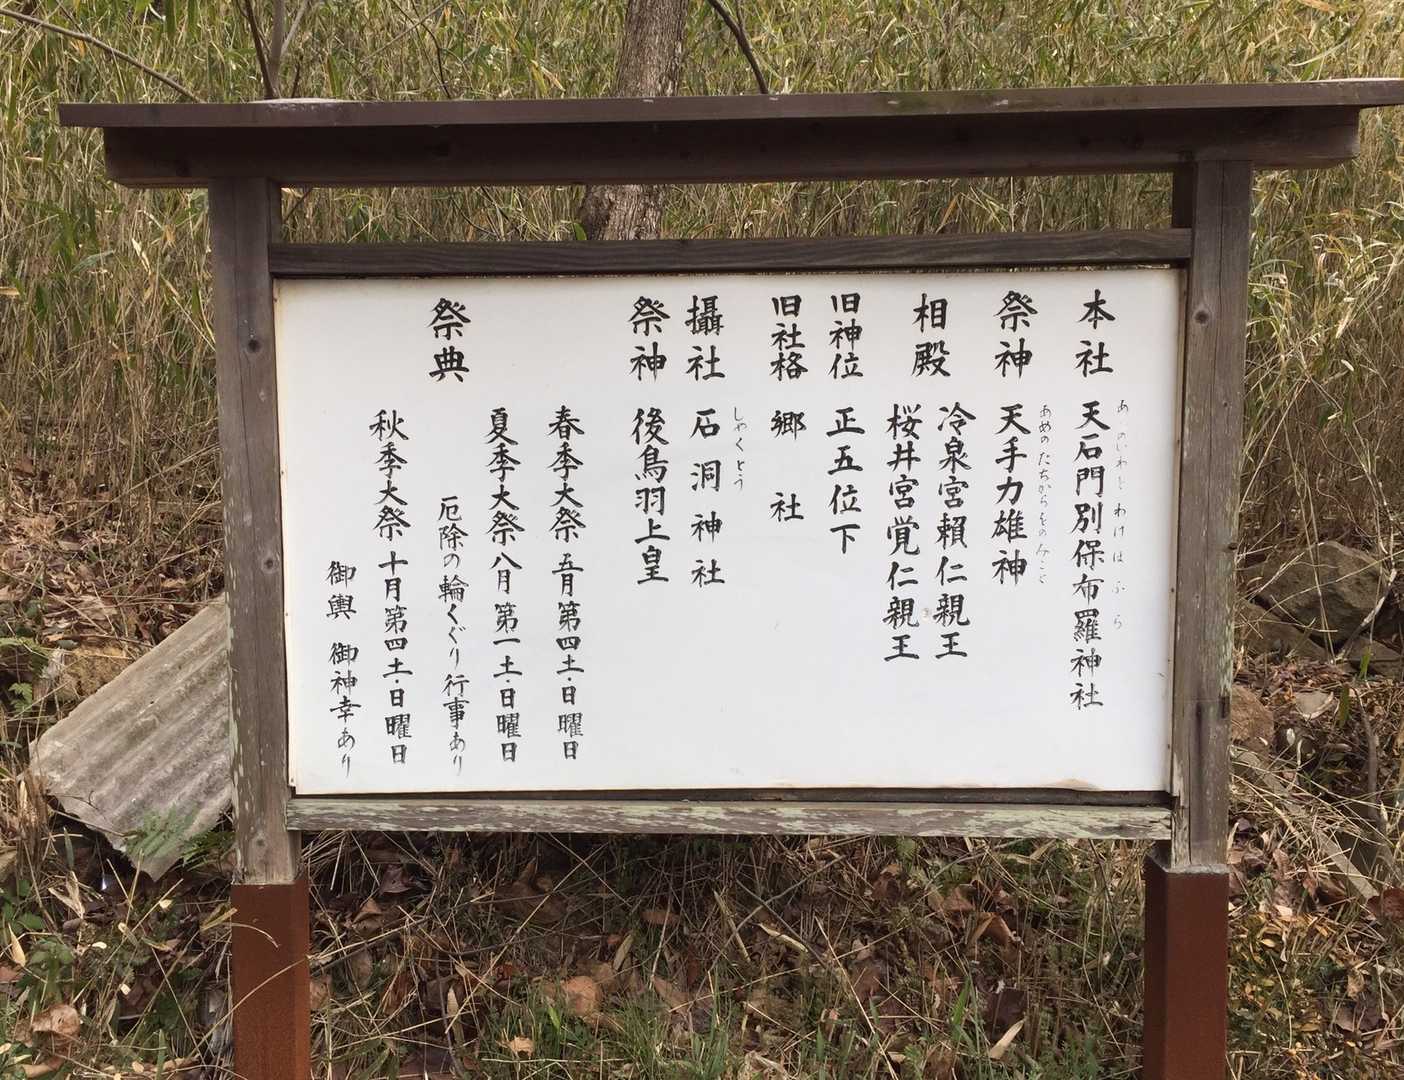 本社 天石門別保布羅神社
祭神 天手力雄神
あめのたぢからをのみこと
相殿 冷泉宮頼仁親王
桜井宮覚仁親王
旧神位 正五位下
旧社格 郷社
攝社 石洞神社
しゃくどう
祭神 後鳥羽上皇
祭典 春季大祭 五月第四土・日曜日
夏季大祭 八月第一土・日曜日
厄除の輪くぐり行事あり
秋季大祭 十月第四土・日曜日
御輿 御神幸あり